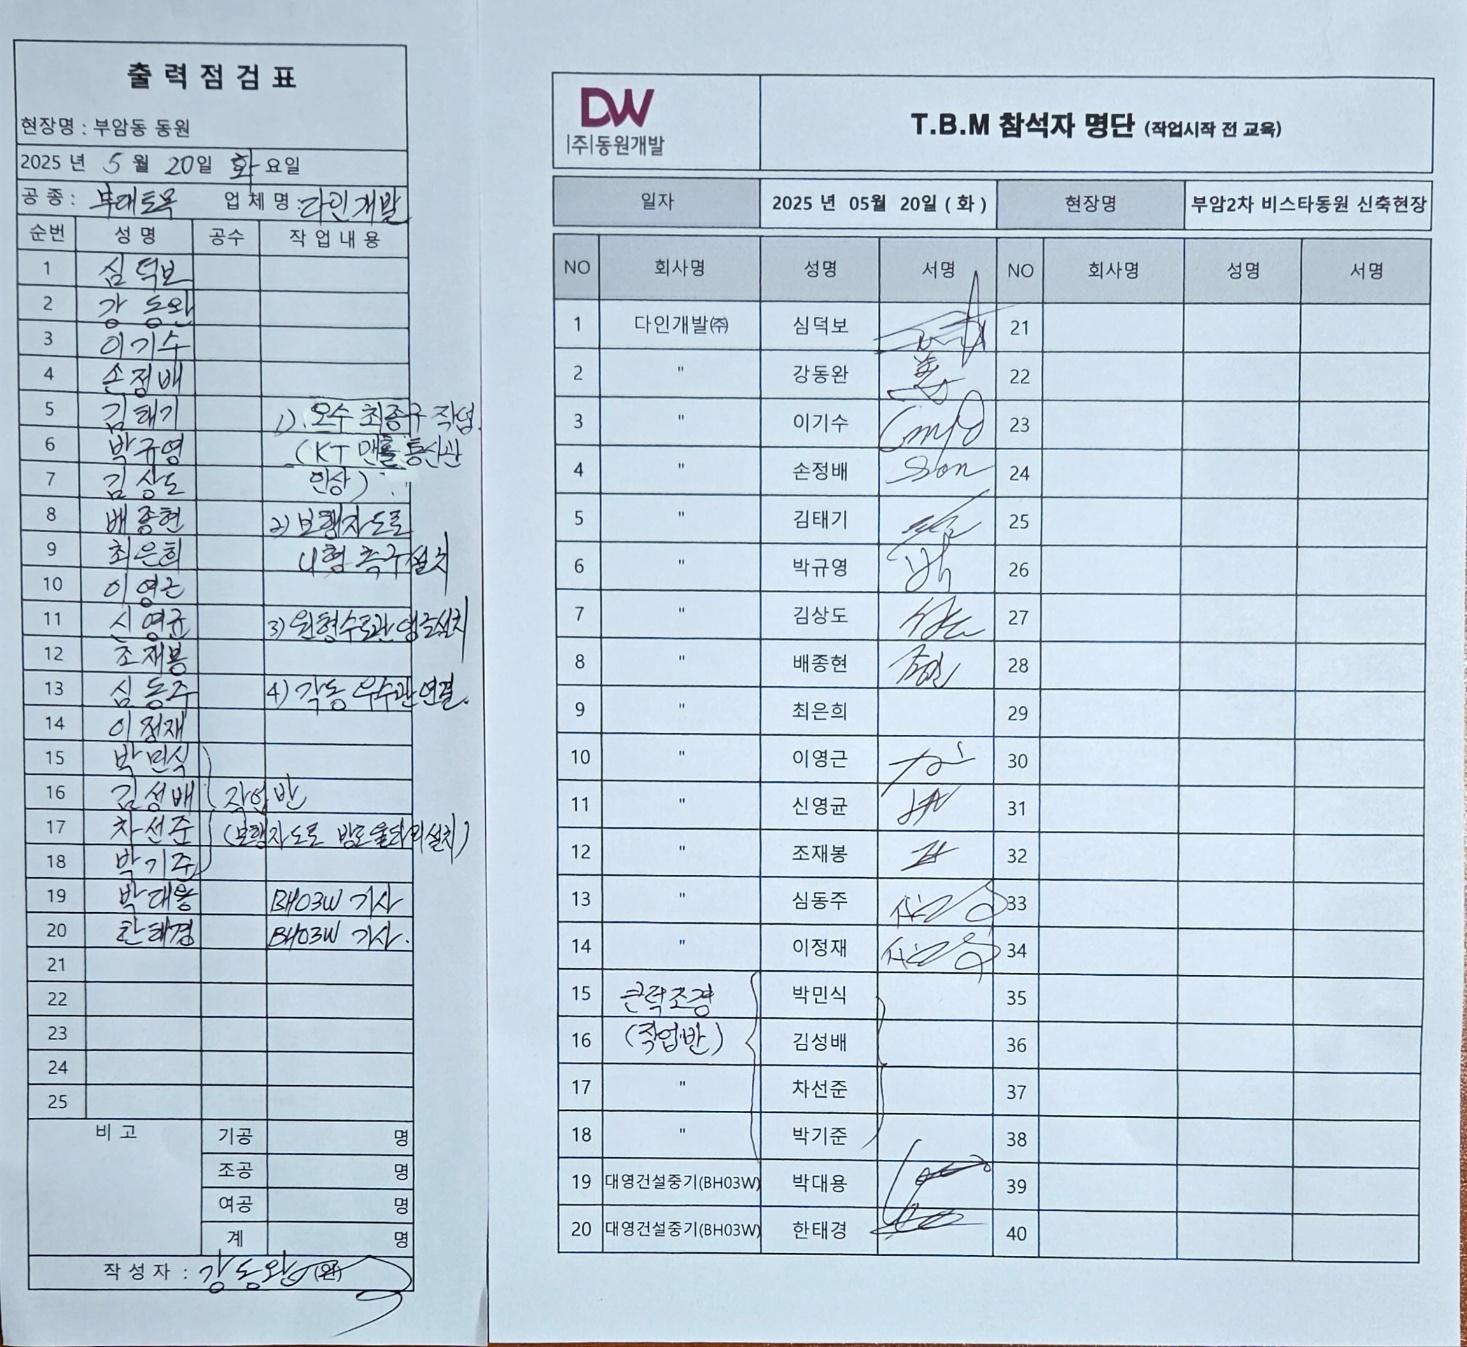 출력점검표
현장명 : 부암동 동원
2025 년 5 월 20일 화 요일
공 종 : 부대토목 업 체 명 : 다인개발
순번 성 명 공수 작 업 내 용
1 심덕보
2 강동완
3 이기수
4 손정배
5 김태기 1). 오수 최종구 작업.
6 박규영 (KT 맨홀 통신관
7 김상도 인상)
8 배종현 2) 보행자도로
9 최은희 U형 측구설치
10 이영근
11 신영균 3) 원형수로관 앵글설치
12 조재봉
13 심동주 4) 각동 우수관 연결.
14 이정재
15 박민식
16 김성배 작업반
17 차선준 (보행자도로 방호울타리설치)
18 박기준
19 박대용 BH03W 기사
20 한태경 BH03W 기사.
21
22
23
24
25
비 고 기공 명
조공 명
여공 명
계 명
작 성 자 : 강동완 (인)
DW
(주)동원개발
T.B.M 참석자 명단 (작업시작 전 교육)
일자 2025 년 05월 20일 ( 화 ) 현장명 부암2차 비스타동원 신축현장
NO 회사명 성명 서명 NO 회사명 성명 서명
1 다인개발㈜ 심덕보 21
2 " 강동완 22
3 " 이기수 23
4 " 손정배 Son 24
5 " 김태기 25
6 " 박규영 박 26
7 " 김상도 27
8 " 배종현 28
9 " 최은희 29
10 " 이영근 30
11 " 신영균 31
12 " 조재봉 32
13 " 심동주 33
14 " 이정재 34
15 박민식 35
16 (작업반) 김성배 36
17 " 차선준 37
18 " 박기준 38
19 대영건설중기(BH03W) 박대용 39
20 대영건설중기(BH03W) 한태경 40